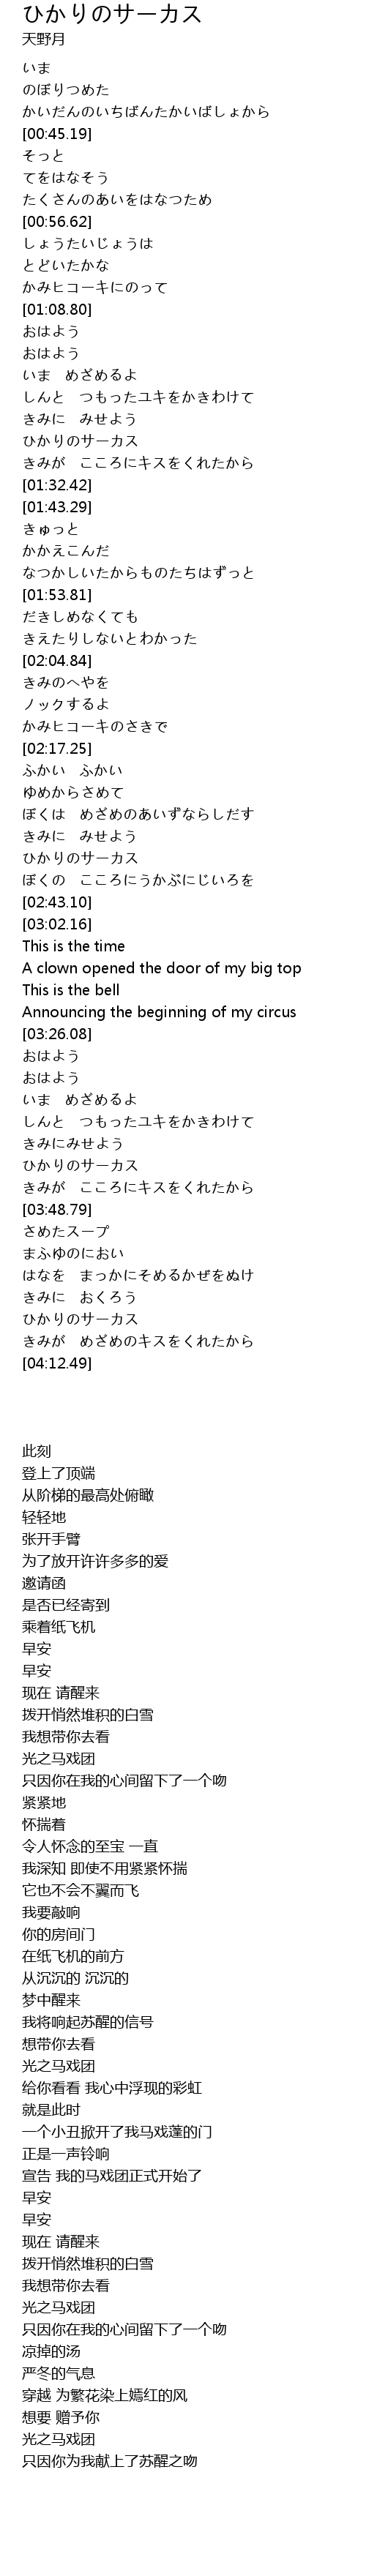 ひかりのサーカス
天野月
いま
のぼりつめた
かいだんのいちばんたかいばしょから
[00:45.19]
そっと
てをはなそう
たくさんのあいをはなつため
[00:56.62]
しょうたいじょうは
とどいたかな
かみヒコーキにのって
[01:08.80]
おはよう
おはよう
いま　めざめるよ
しんと　つもったユキをかきわけて
きみに　みせよう
ひかりのサーカス
きみが　こころにキスをくれたから
[01:32.42]
[01:43.29]
きゅっと
かかえこんだ
なつかしいたからものたちはずっと
[01:53.81]
だきしめなくても
きえたりしないとわかった
[02:04.84]
きみのへやを
ノックするよ
かみヒコーキのさきで
[02:17.25]
ふかい　ふかい
ゆめからさめて
ぼくは　めざめのあいずならしだす
きみに　みせよう
ひかりのサーカス
ぼくの　こころにうかぶにじいろを
[02:43.10]
[03:02.16]
This is the time
A clown opened the door of my big top
This is the bell
Announcing the beginning of my circus
[03:26.08]
おはよう
おはよう
いま　めざめるよ
しんと　つもったユキをかきわけて
きみにみせよう
ひかりのサーカス
きみが　こころにキスをくれたから
[03:48.79]
さめたスープ
まふゆのにおい
はなを　まっかにそめるかぜをぬけ
きみに　おくろう
ひかりのサーカス
きみが　めざめのキスをくれたから
[04:12.49]
此刻
登上了顶端
从阶梯的最高处俯瞰
轻轻地
张开手臂
为了放开许许多多的爱
邀请函
是否已经寄到
乘着纸飞机
早安
早安
现在 请醒来
拨开悄然堆积的白雪
我想带你去看
光之马戏团
只因你在我的心间留下了一个吻
紧紧地
怀揣着
令人怀念的至宝 一直
我深知 即使不用紧紧怀揣
它也不会不翼而飞
我要敲响
你的房间门
在纸飞机的前方
从沉沉的 沉沉的
梦中醒来
我将响起苏醒的信号
想带你去看
光之马戏团
给你看看 我心中浮现的彩虹
就是此时
一个小丑掀开了我马戏蓬的门
正是一声铃响
宣告 我的马戏团正式开始了
早安
早安
现在 请醒来
拨开悄然堆积的白雪
我想带你去看
光之马戏团
只因你在我的心间留下了一个吻
凉掉的汤
严冬的气息
穿越 为繁花染上嫣红的风
想要 赠予你
光之马戏团
只因你为我献上了苏醒之吻